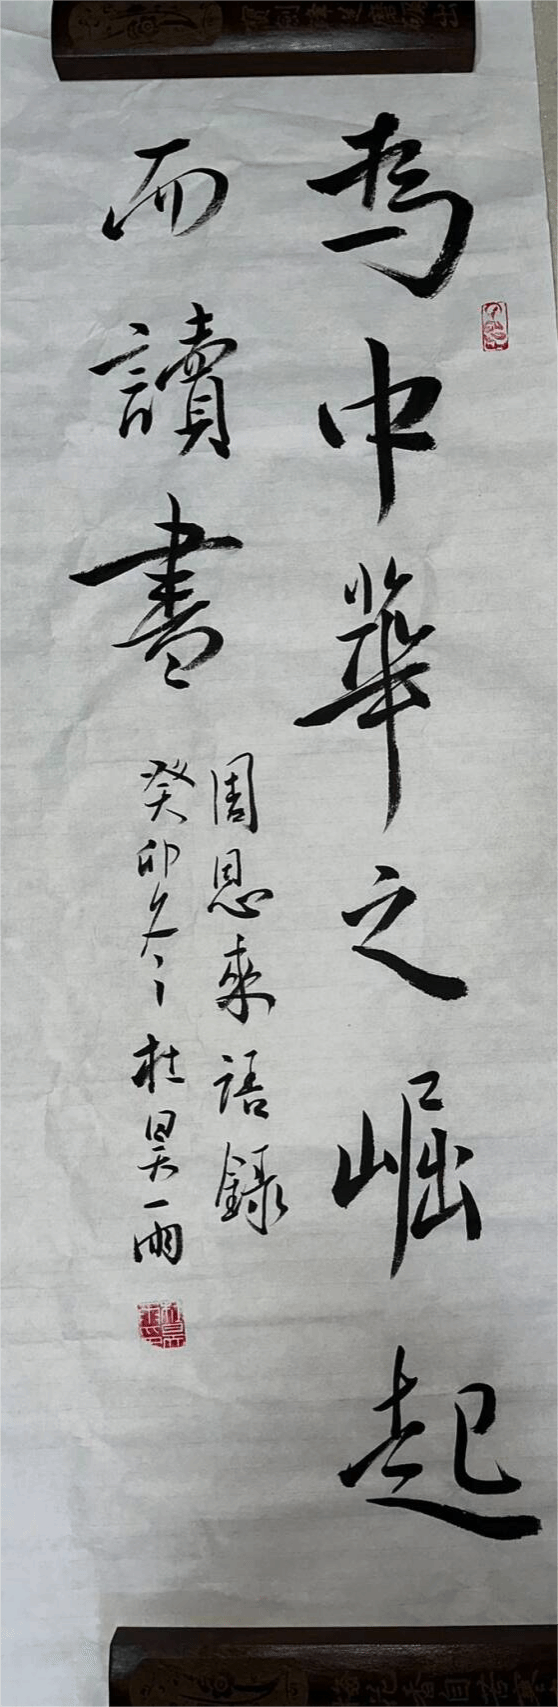 為中華之崛起
而讀書
周恩來語錄
癸卯冬 杜昊雨